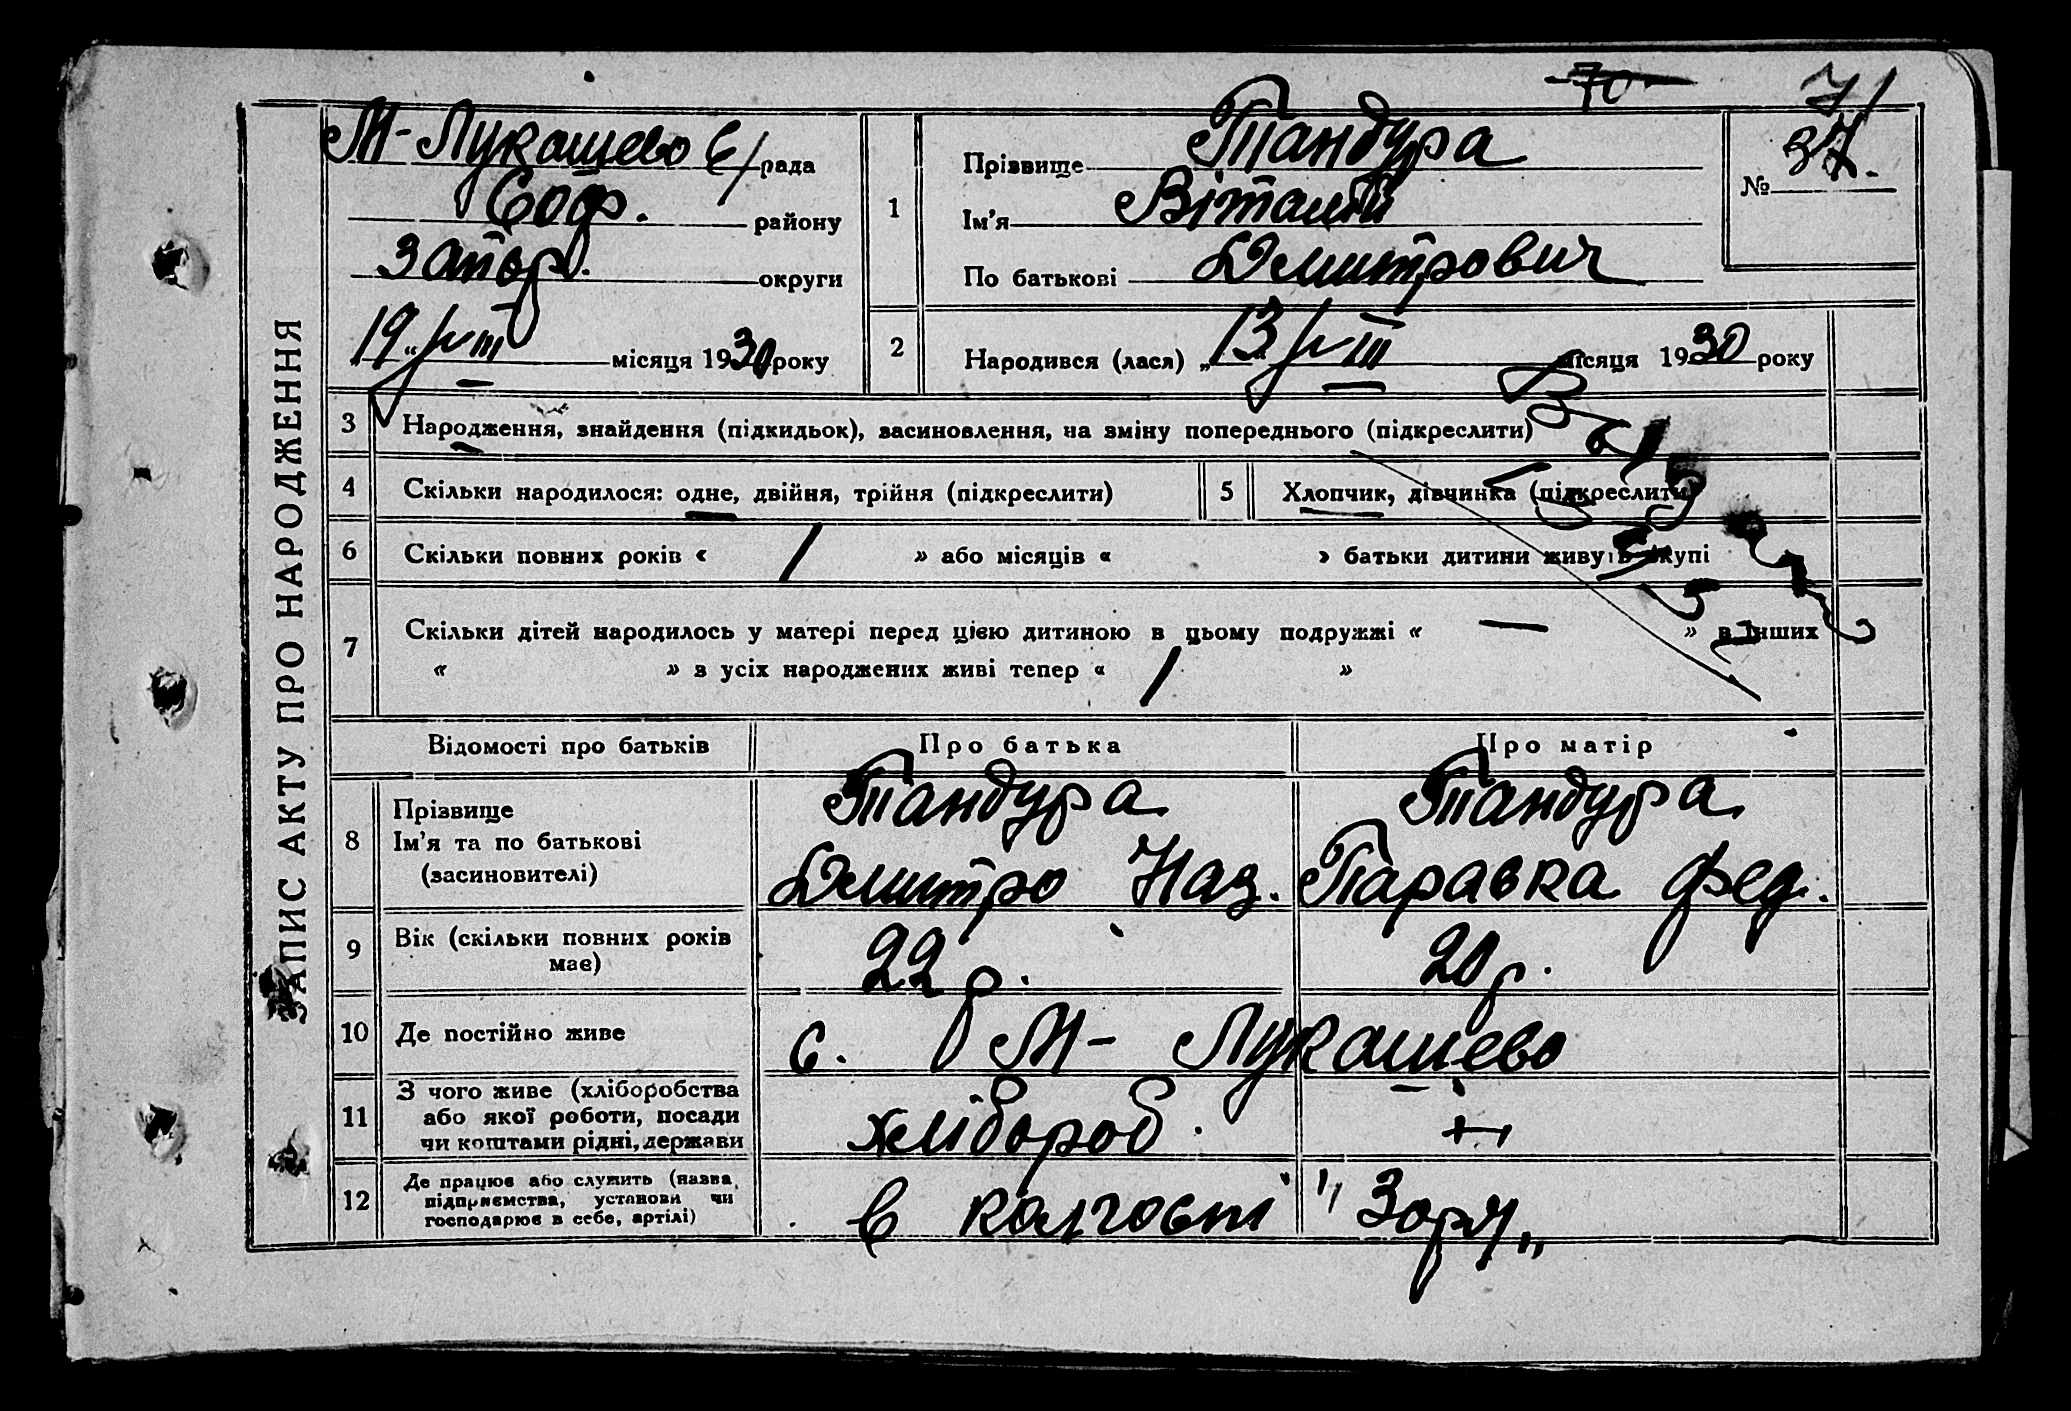 70 71
ЗАПИС АКТУ ПРО НАРОДЖЕННЯ
М-Лукашево с/рада
Соф. району
Запор. округи
19 "VIII місяця 1930 року
1
Прізвище Тандура
Ім'я Віталій
По батькові Дмитрович
№ 37.
2 Народився (лася) „13" VIII місяця 1930 року
3 Народження, знайдення (підкидьок), засиновлення, на зміну попереднього (підкреслити)
4 Скільки народилося: одне, двійня, трійня (підкреслити)
5 Хлопчик, дівчинка (підкреслити)
6 Скільки повних років « 1 » або місяців « » батьки дитини живуть вкупі
7 Скільки дітей народилось у матері перед цією дитиною в цьому подружжі « — » в інших
« » з усіх народжених живі тепер « 1 »
Відомості про батьків Про батька Про матір
8 Прізвище Тандура Тандура
Ім'я та по батькові Дмитро Наз. Паравка Фед.
(засиновителі)
9 Вік (скільки повних років має) 22 р. 20 р.
10 Де постійно живе с. М-Лукашево
11 З чого живе (хліборобства
або якої роботи, посади
чи коштами рідні, держави
хлібороб. -"-
12 Де працює або служить (назва,
підприємства, установи чи
господарює в себе, артілі)
в колгоспі "Зоря"